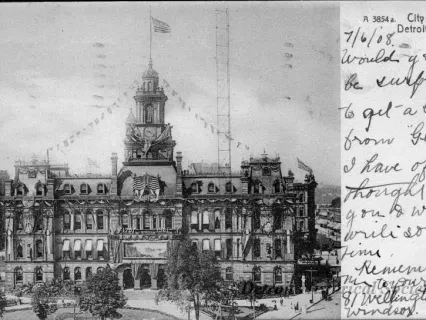 A 3854 a. City
Detroit
7/6/08.
Would y
be surp
to get a s
from
I have of
thought
you & w
write so
time
Rememb
81 Wellingt
Windsor.